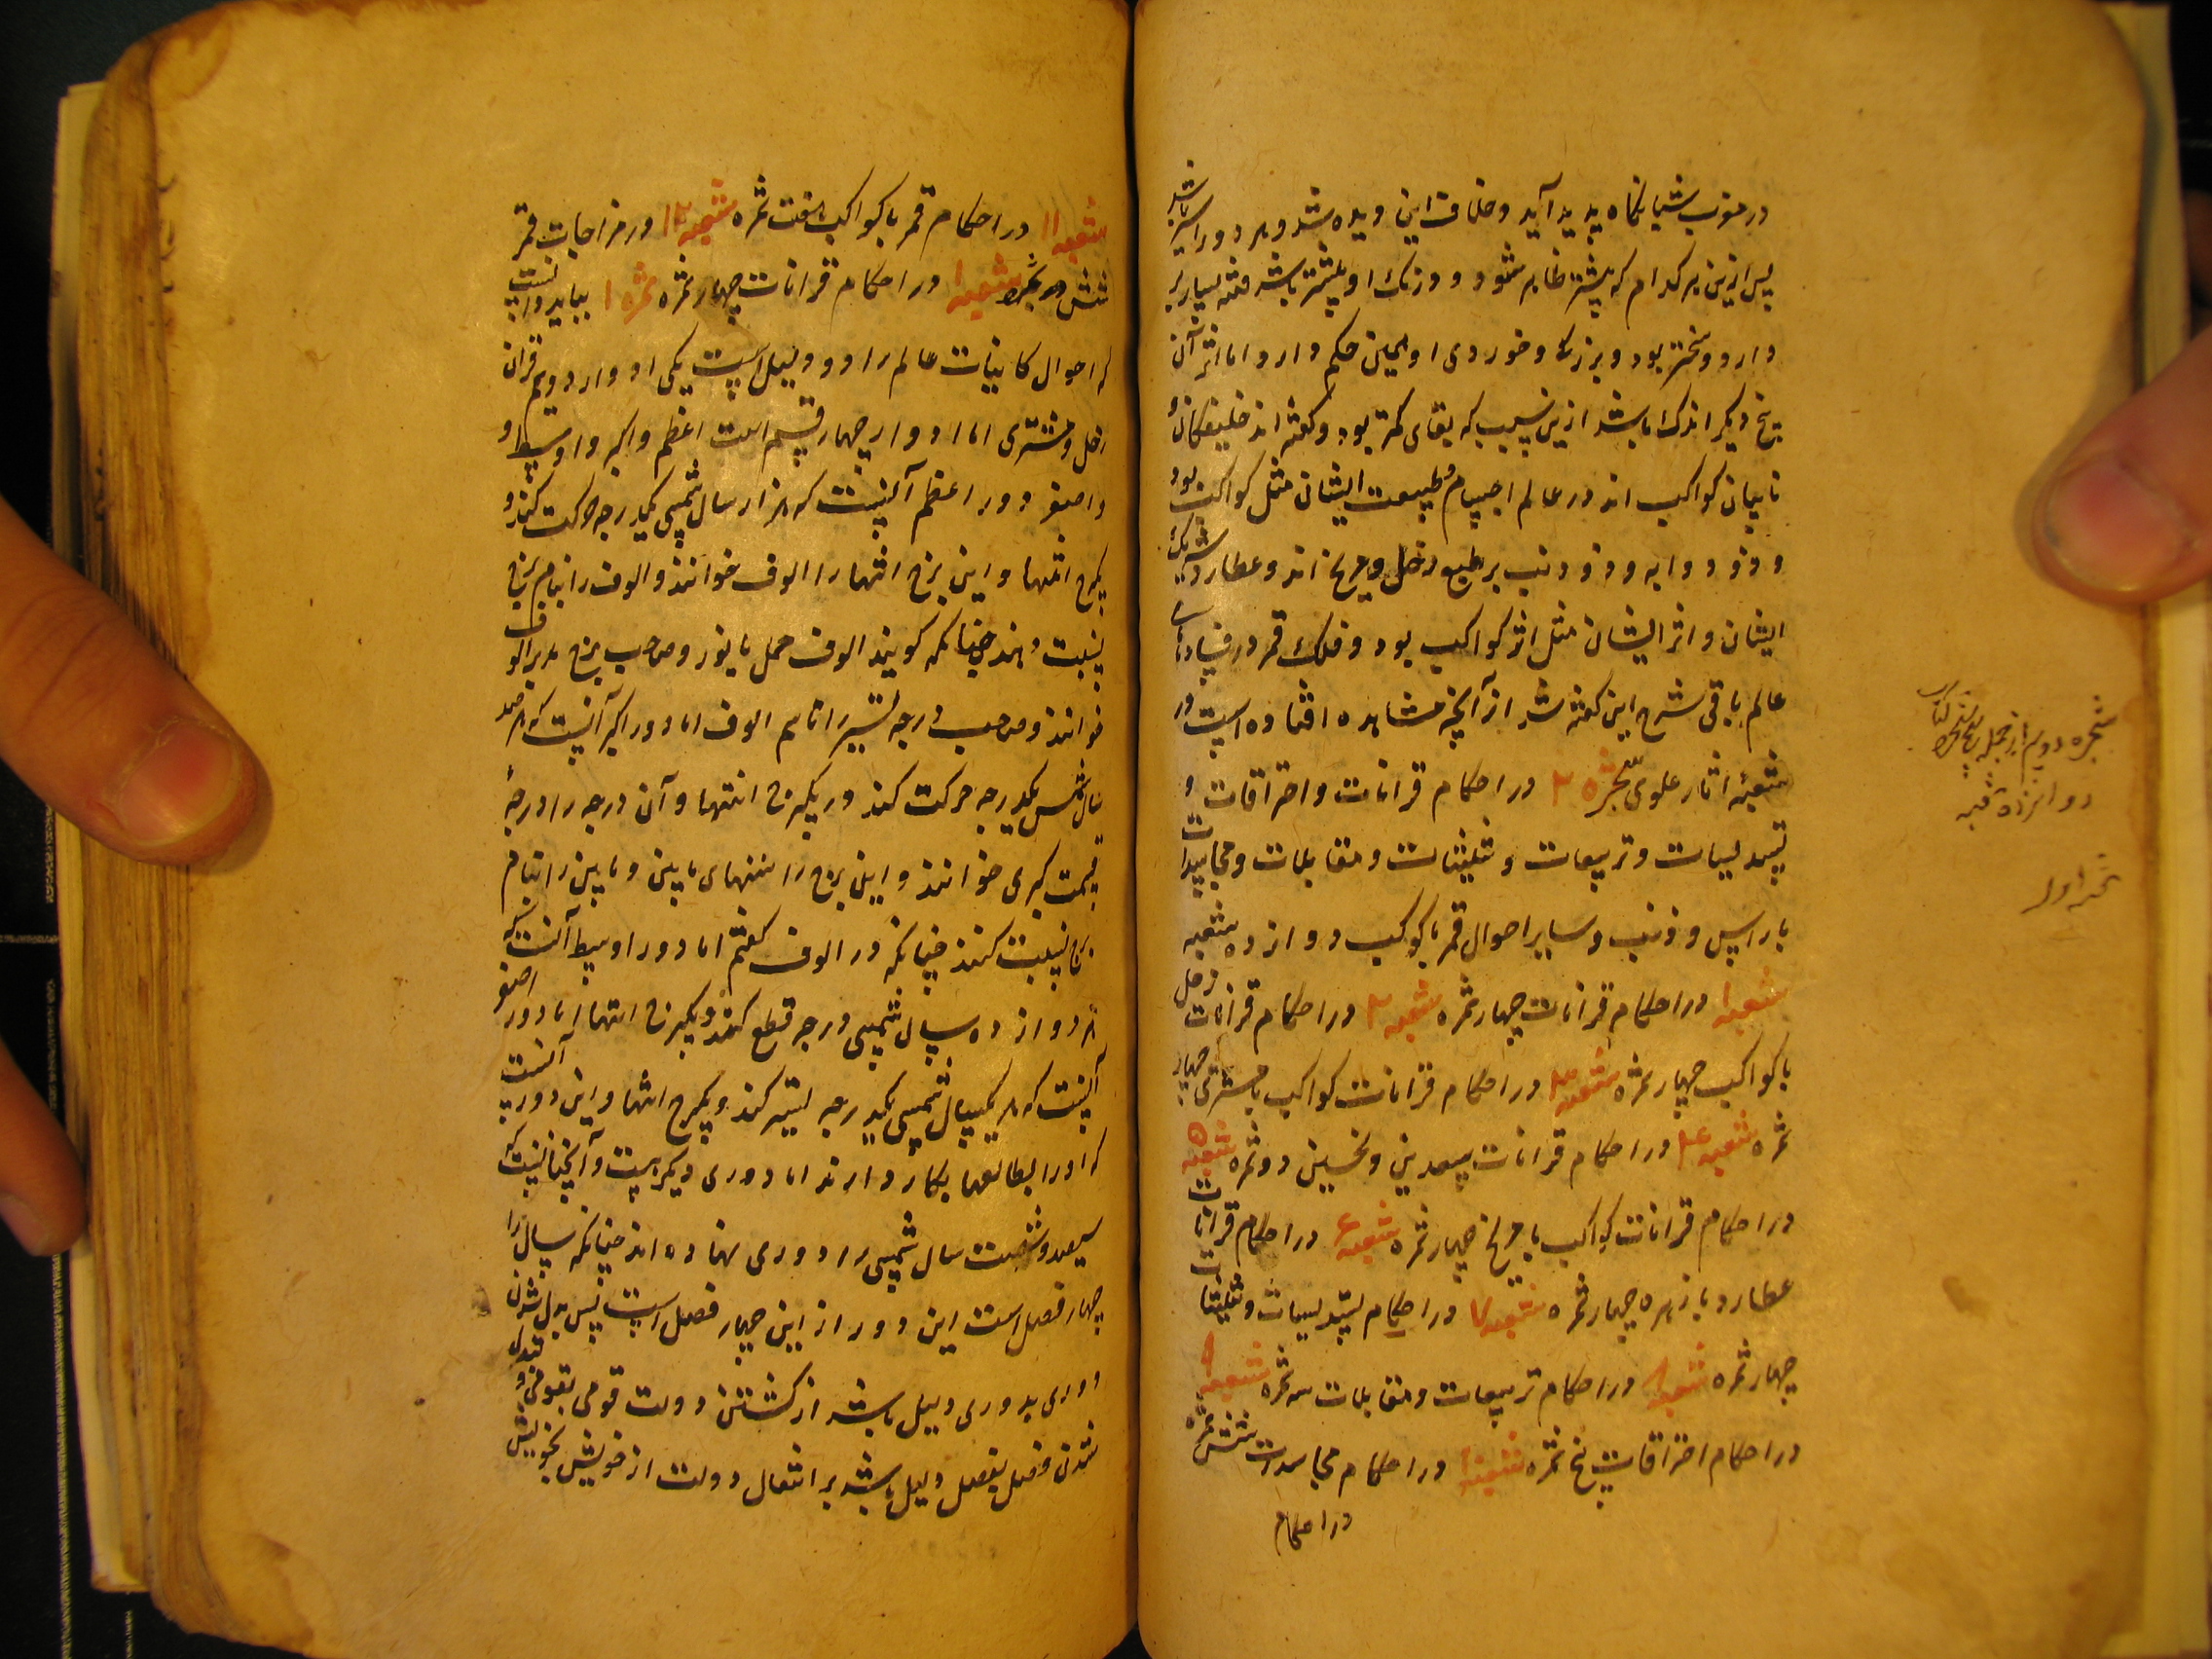 در مغرب شبانگاه پدید آید و خلاف این دیده شد و هر دو را باشد
پس ازین هر کدام که پیشتر ظاهر شود و درنگ او بیشتر باشد فتنه بسیار
دارد و سختر بود و بزرگی و خوردی او همین حکم دارد اما اثر آن
پنج دیگر اندک باشد ازین سبب که بقای کمتر بود و گفته اند خلیفکان و
نایبان کواکب اند در عالم اجسام و طبیعت ایشان مثل کواکب بود
و ذو دوابه و ذو ذنب بر طبع زحل و مریخ اند و عطارد شریک
ایشان و اثر ایشان مثل اثر کواکب بود و فلک قمر در فساد
عالم باقی شرح این گفته شد از آنچه مشاهده افتاده است در
شعبهٔ آثار علوی شجره ۲ در احکام قرانات و احتراقات و
تسدیسات و تربیعات و تثلیثات و مقابلات و مجاسدات
با راس و ذنب و سایر احوال قمر با کواکب دوازده شعبه
شعبه ۱ در احکام قرانات چهار ثمره شعبه ۲ در احکام قرانات زحل
با کواکب چهار ثمره شعبه ۳ در احکام قرانات کواکب با مشتری چهار
ثمره شعبه ۴ در احکام قرانات سعدین و نحسین دو ثمره شعبه ۵
در احکام قرانات کواکب با مریخ چهار ثمره شعبه ۶ در احکام قرانات
عطارد با زهره چهار ثمره شعبه ۷ در احکام تسدیسات و تثلیثات
چهار ثمره شعبه ۸ در احکام تربیعات و مقابلات سه ثمره شعبه ۹
در احکام احتراقات پنج ثمره شعبه ۱۰ در احکام مجاسدات شش ثمره
در احکام
شجره دویم از جمله پنج شجره کتاب
دوازده شعبه
ثمره اول
شعبه ۱۱ در احکام قمر با کواکب هفت ثمره شعبه ۱۲ در مزاجات قمر
شش ثمره شعبه ۱ در احکام قرانات چهار ثمره ثمره ۱ بباید دانست
که احوال کاینات عالم را دو دلیل است یکی ادوار دویم قران
زحل و مشتری اما ادوار چهار قسم است اعظم و اکبر و اوسط و
و اصغر دور اعظم آنست که هزار سال شمسی یکدرجه حرکت کند و
یکبرج انتها و این برج انتها را الوف خوانند و الوف را بنام برج
نسبت دهند چنانکه گویند الوف حمل یا ثور و صاحب برج مدبر الوف
خوانند و صاحب درجه تسییر اقاسم الوف اما دور اکبر آنست که هر صد
سال شمسی یکدرجه حرکت کند و یکبرج انتها و آن درجه را درجهٔ
قسمت کبری خوانند و این برج را منتهای مایین و مایین را بنام
برج نسبت کنند چنانکه در الوف گفتم اما دور اوسط آنست که
هر دوازده سال شمسی درجه قطع کند و یکبرج انتها اما دور اصغر
آنست که هر یکسال شمسی یکدرجه تسییر کند و یکبرج انتها و این دور آنست
که او را بطالعها بکار دارند اما دوری دیگر هست و آن چنانست که
سیصد و شصت سال شمسی را دوری نهاده اند چنانکه سال را
چهار فصل است این دور از این چهار فصل است پس بدل شدن
دوری بدوری دلیل باشد از گشتن دولت قومی بقومی و تبدل
شدن فصل بفصل دلیل باشد بر انتقال دولت از خویش بخویش